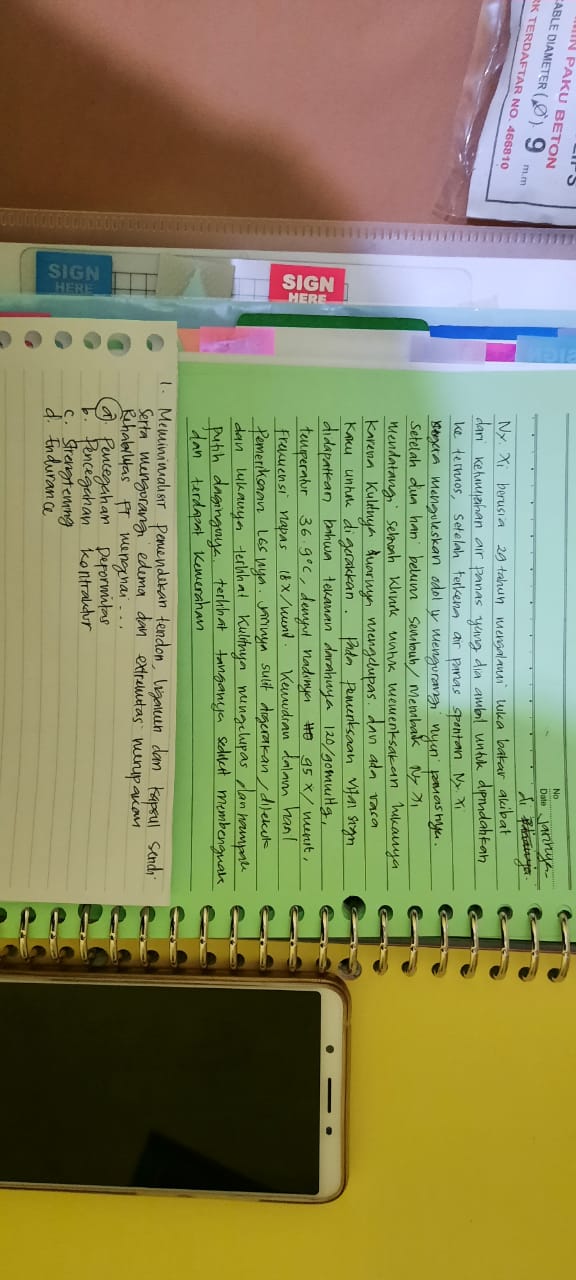 MIN PAKU BETON
CABLE DIAMETER (Ø) 9 m.m
RK TERDAFTAR NO. 466810
SIGN
HERE
SIGN
HERE
No
Date
di jarinya
Ny. Xi berusia 29 tahun mengalami luka bakar akibat
dari ketumpahan air panas yang dia ambil untuk dipindahkan
ke termos, setelah terkena air panas spontan Ny. Xi
segera mengoleskan odol u/ mengurangi nyeri panasnya.
Setelah dua hari belum sembuh / membaik Ny Xi
mendatangi sebuah klinik untuk memeriksakan lukanya
karena kulitnya jarinya mengelupas. dan ada rasa
kaku untuk digerakkan. Pada pemeriksaan vital sign
didapatkan bahwa tekanan darahnya 120/90mmHg,
temperatur 36.9°C, denyut nadinya 95 x/menit,
frekuensi napas 18 x/menit. Kemudian dalam hasil
Pemeriksaan LGSnya. jarinya sulit digerakan / ditekuk
dan lukanya terlihat kulitnya mengelupas dan nampak
putih dagingnya. terlihat tangannya sedikit membengkak
dan terdapat kemerahan
1. Meminimalisir Pemendekan tendon, ligamen dan kapsul sendi
serta mengurangi edema dan extremitas merupakan
Rehabilitas FT mengenai ...
a. Pencegahan Deformitas
b. Pencegahan kontraktur
c. Strengthening
d. Endurance